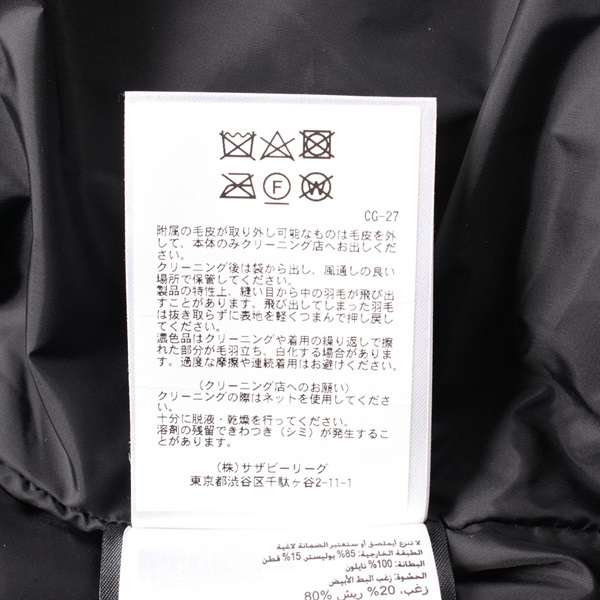 F W
CG-27
附属の毛皮が取り外し可能なものは毛皮を外
して、本体のみクリーニング店へお出しくだ
さい。
クリーニング後は袋から出し、風通しの良い
場所で保管してください。
製品の特性上、縫い目から中の羽毛が飛び出
すことがあります。飛び出してしまった羽毛
は抜き取らずに表地を軽くつまんで押し戻し
てください。
濃色品はクリーニングや着用の繰り返しで擦
れた部分が毛羽立ち、白化する場合がありま
す。過度な摩擦や連続着用はお避けください。
(クリーニング店へのお願い)
クリーニングの際はネットを使用してくださ
い。
十分に脱液・乾燥を行ってください。
溶剤の残留できわつき(シミ)が発生するこ
とがあります。
(株)サザビーリーグ
東京都渋谷区千駄ヶ谷2-11-1
لا تنزع أيملصق أو ستعتبر الضمانة لاغية
الطبقة الخارجية: 85% بوليستر 15% قطن
البطانة: 100% نايلون
الحشوة: زغب البط الأبيض
80% زغب، 20% ريش